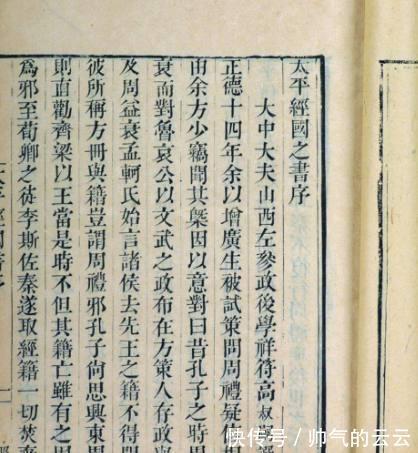 太平經國之書序
大中大夫山西左叅政後學祥符高叔
正德十四年余以增廣生被試策問周禮疑
由余方少竊聞其槩因以意對曰昔孔子之時周
衰而對魯哀公以文武之政布在方策人存政
及周益衰孟軻氏始言諸侯去先王之籍不得聞
彼所稱方冊與籍豈謂周禮邪孔子尚思興東周
則直勸齊梁以王當是時不但其籍亡雖有之
爲邪至荀卿之徒李斯佐秦遂取經籍一切焚
快传号 / 帅气的云云